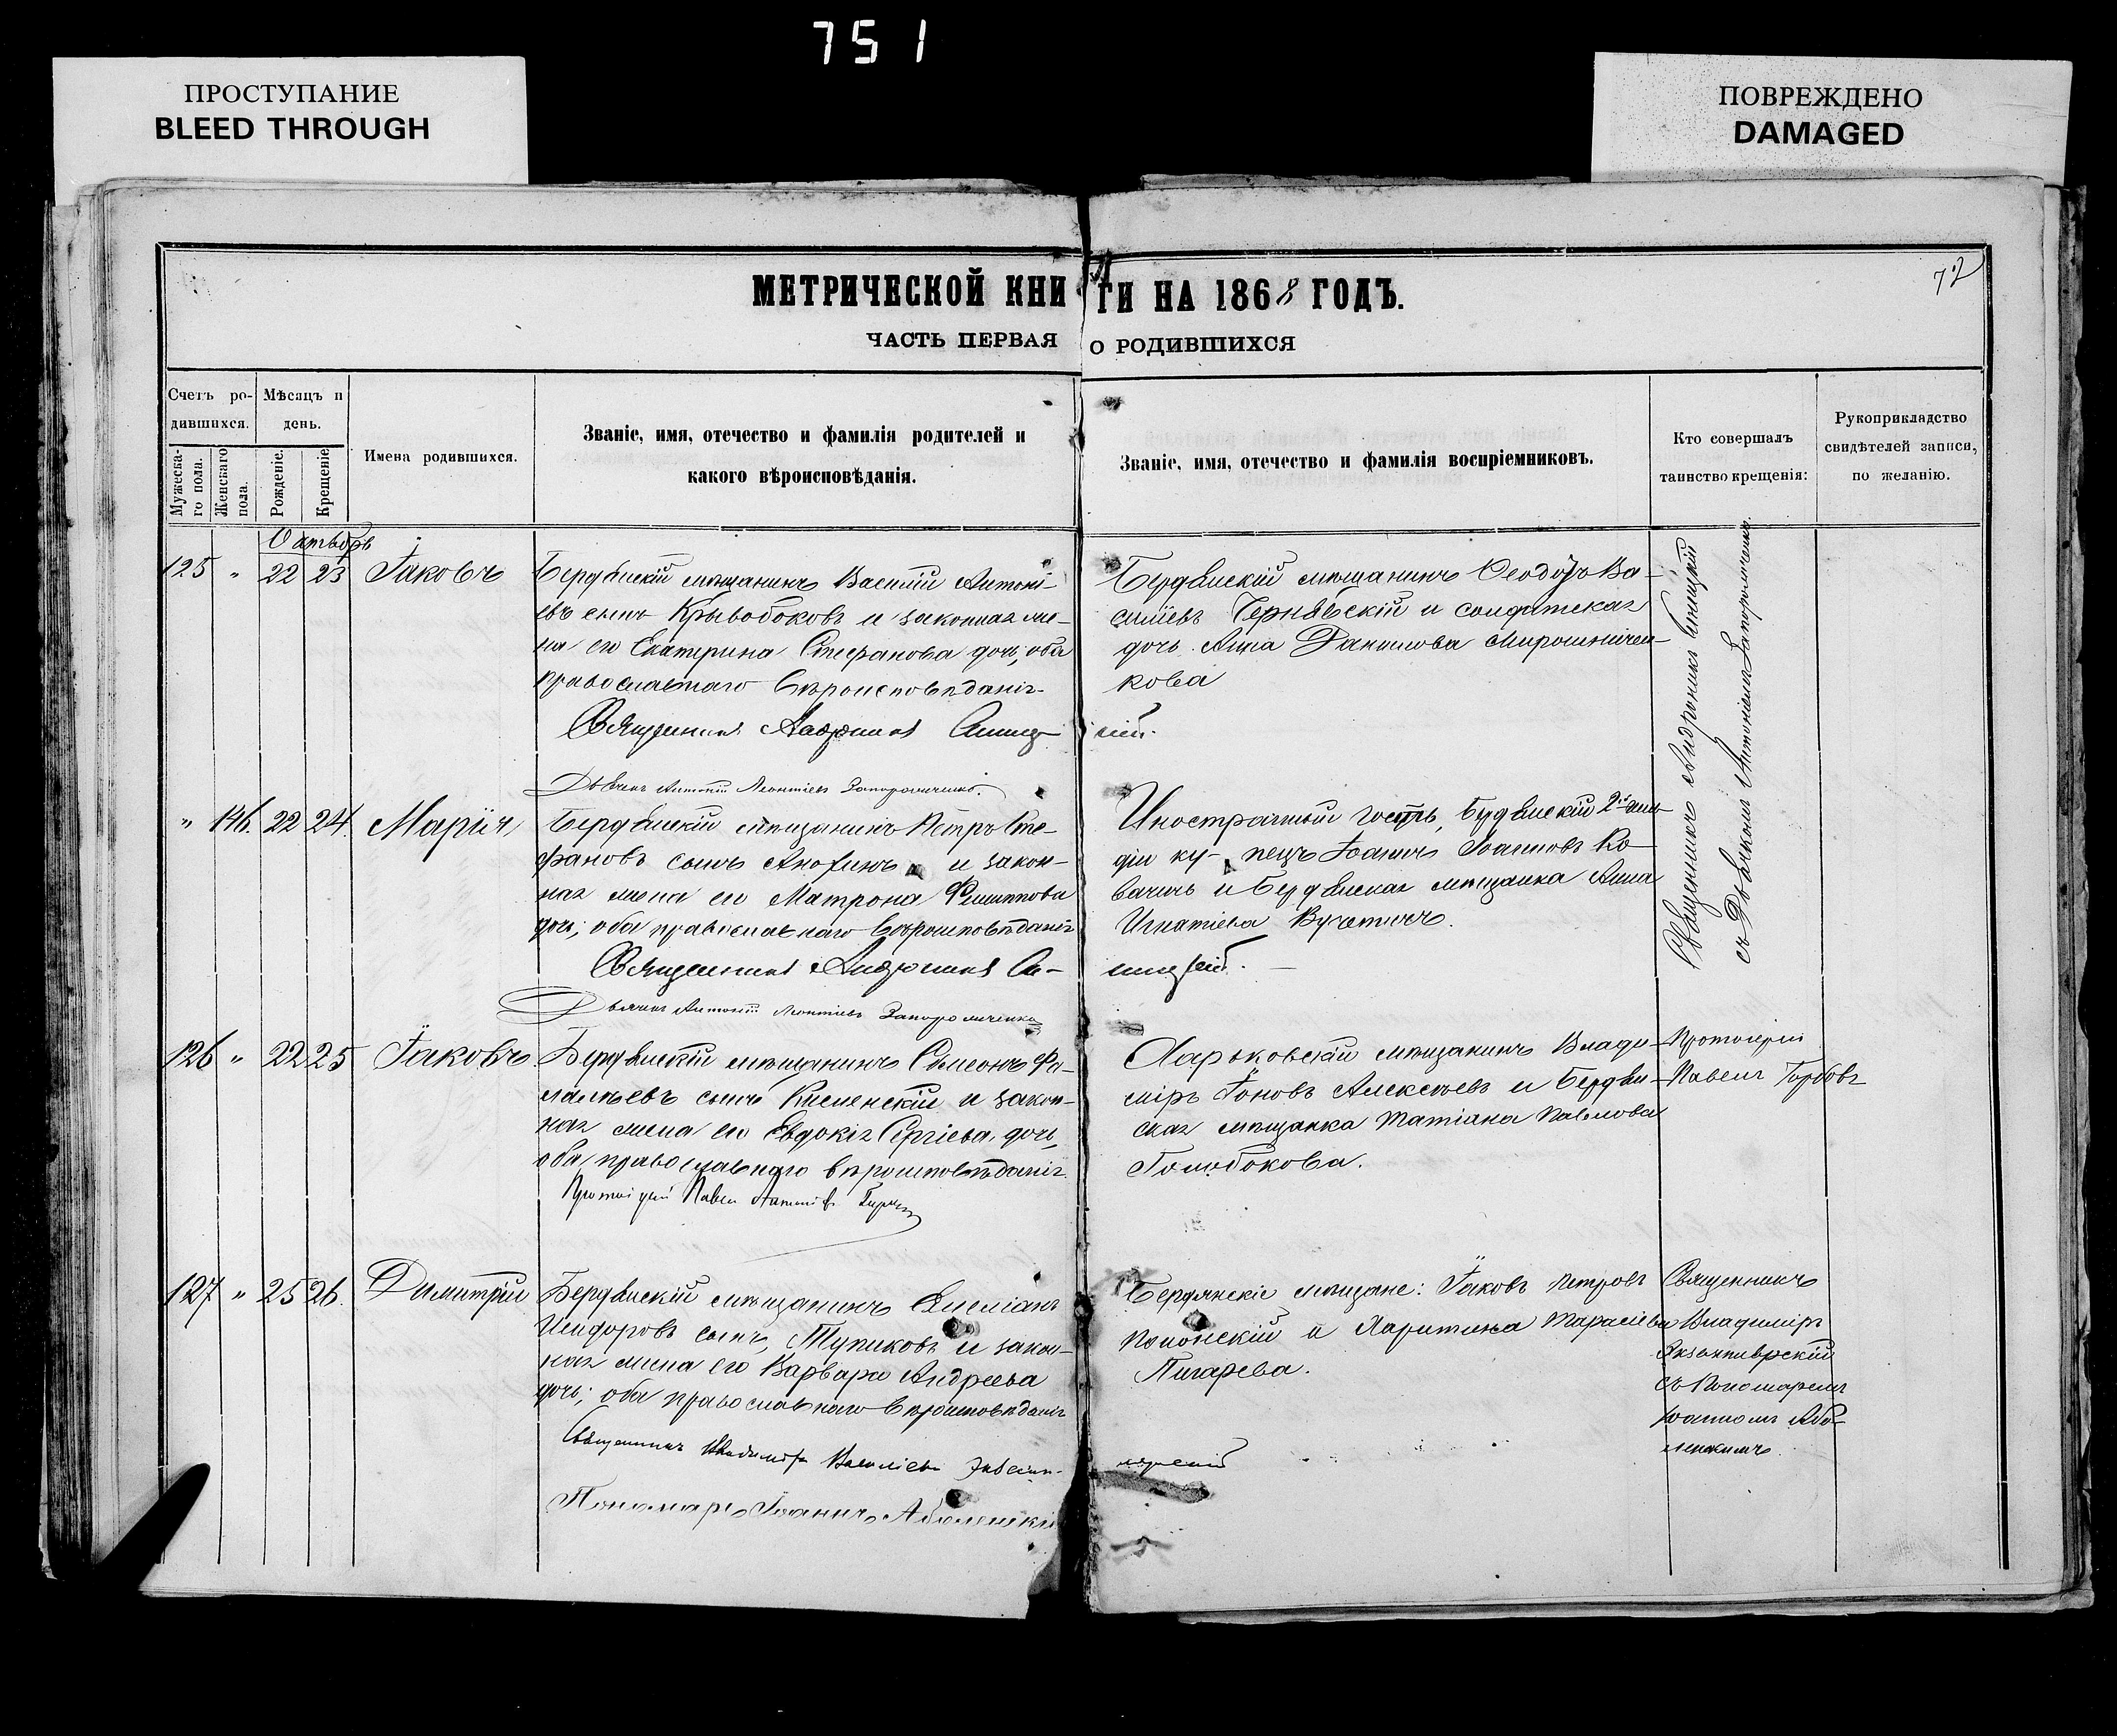 751
ПРОСТУПАНИЕ
BLEED THROUGH
ПОВРЕЖДЕНО
DAMAGED
72
МЕТРИЧЕСКОЙ КНИГИ НА 1868 ГОДЪ.
ЧАСТЬ ПЕРВАЯ О РОДИВШИХСЯ
Счетъ ро-
дившихся.
Мѣсяцъ и
день.
Мужеска-
го пола.
Женскаго
пола.
Рожденіе.
Крещеніе
Имена родившихся.
Званіе, имя, отечество и фамилія родителей и
какого вѣроисповѣданія.
Званіе, имя, отечество и фамилія воспріемниковъ.
Кто совершалъ
таинство крещенія:
Рукоприкладство
свидѣтелей записи,
по желанію.
Октябрь
125 " 22 23 Іаковъ
Бердянскій мѣщанинъ Василій Антоні-
евъ сынъ Кривобоковъ и законная же-
на его Екатерина Стефанова дочь, оба
православнаго вѣроисповѣданія
Священникъ Андроникъ
Дьячекъ Антоній Леонтіевъ Запорожченко.
Бердянскій мѣщанинъ Ѳеодоръ Ва-
силіевъ Чернявскій и солдатская
дочь Анна Данилова Мирошничен-
кова
Священникъ Андроникъ
съ Дьячкомъ Антоніемъ Запорожченко.
" 146. 22 24. Марія
Бердянскій мѣщанинъ Петръ Сте-
фановъ сынъ и закон-
ная жена его Матрона Филиппова
дочь; оба православнаго вѣроисповѣданія
Священникъ Андроникъ
Дьячекъ Антоній Леонтіевъ Запорожченко
Иностранный гость, Бердянскій 2й гиль-
діи ку- пецъ Іоаннъ Іоанновъ Ко-
вачичъ и Бердянская мѣщанка Анна
Игнатіева Вучетичъ.
126 " 22 25 Іаковъ
Бердянскій мѣщанинъ Сѵмеонъ
сынъ и закон-
ная жена его Евдокія Сергіева дочь,
оба православнаго вѣроисповѣданія.
Протоіерей Павел
Харьковскій мѣщанинъ Влади-
міръ Іоновъ Алексѣевъ и Бердян-
ская мѣщанка Татіана Павлова
Голобокова.
Протоіерей
Павелъ
127 " 25 26. Димитрій
Бердянскій мѣщанинъ Емеліанъ
Исидоровъ сынъ Тупиковъ и закон-
ная жена его Варвара Андреева
дочь; оба православнаго вѣроисповѣданія
Священникъ Владиміръ Василіевъ
Пономарь Іоаннъ
Бердянскіе мѣщане: Іаковъ Петровъ
и Харитина Тарасіева
Пигарева.
Священникъ
Владиміръ
съ Пономаремъ
Іоанномъ